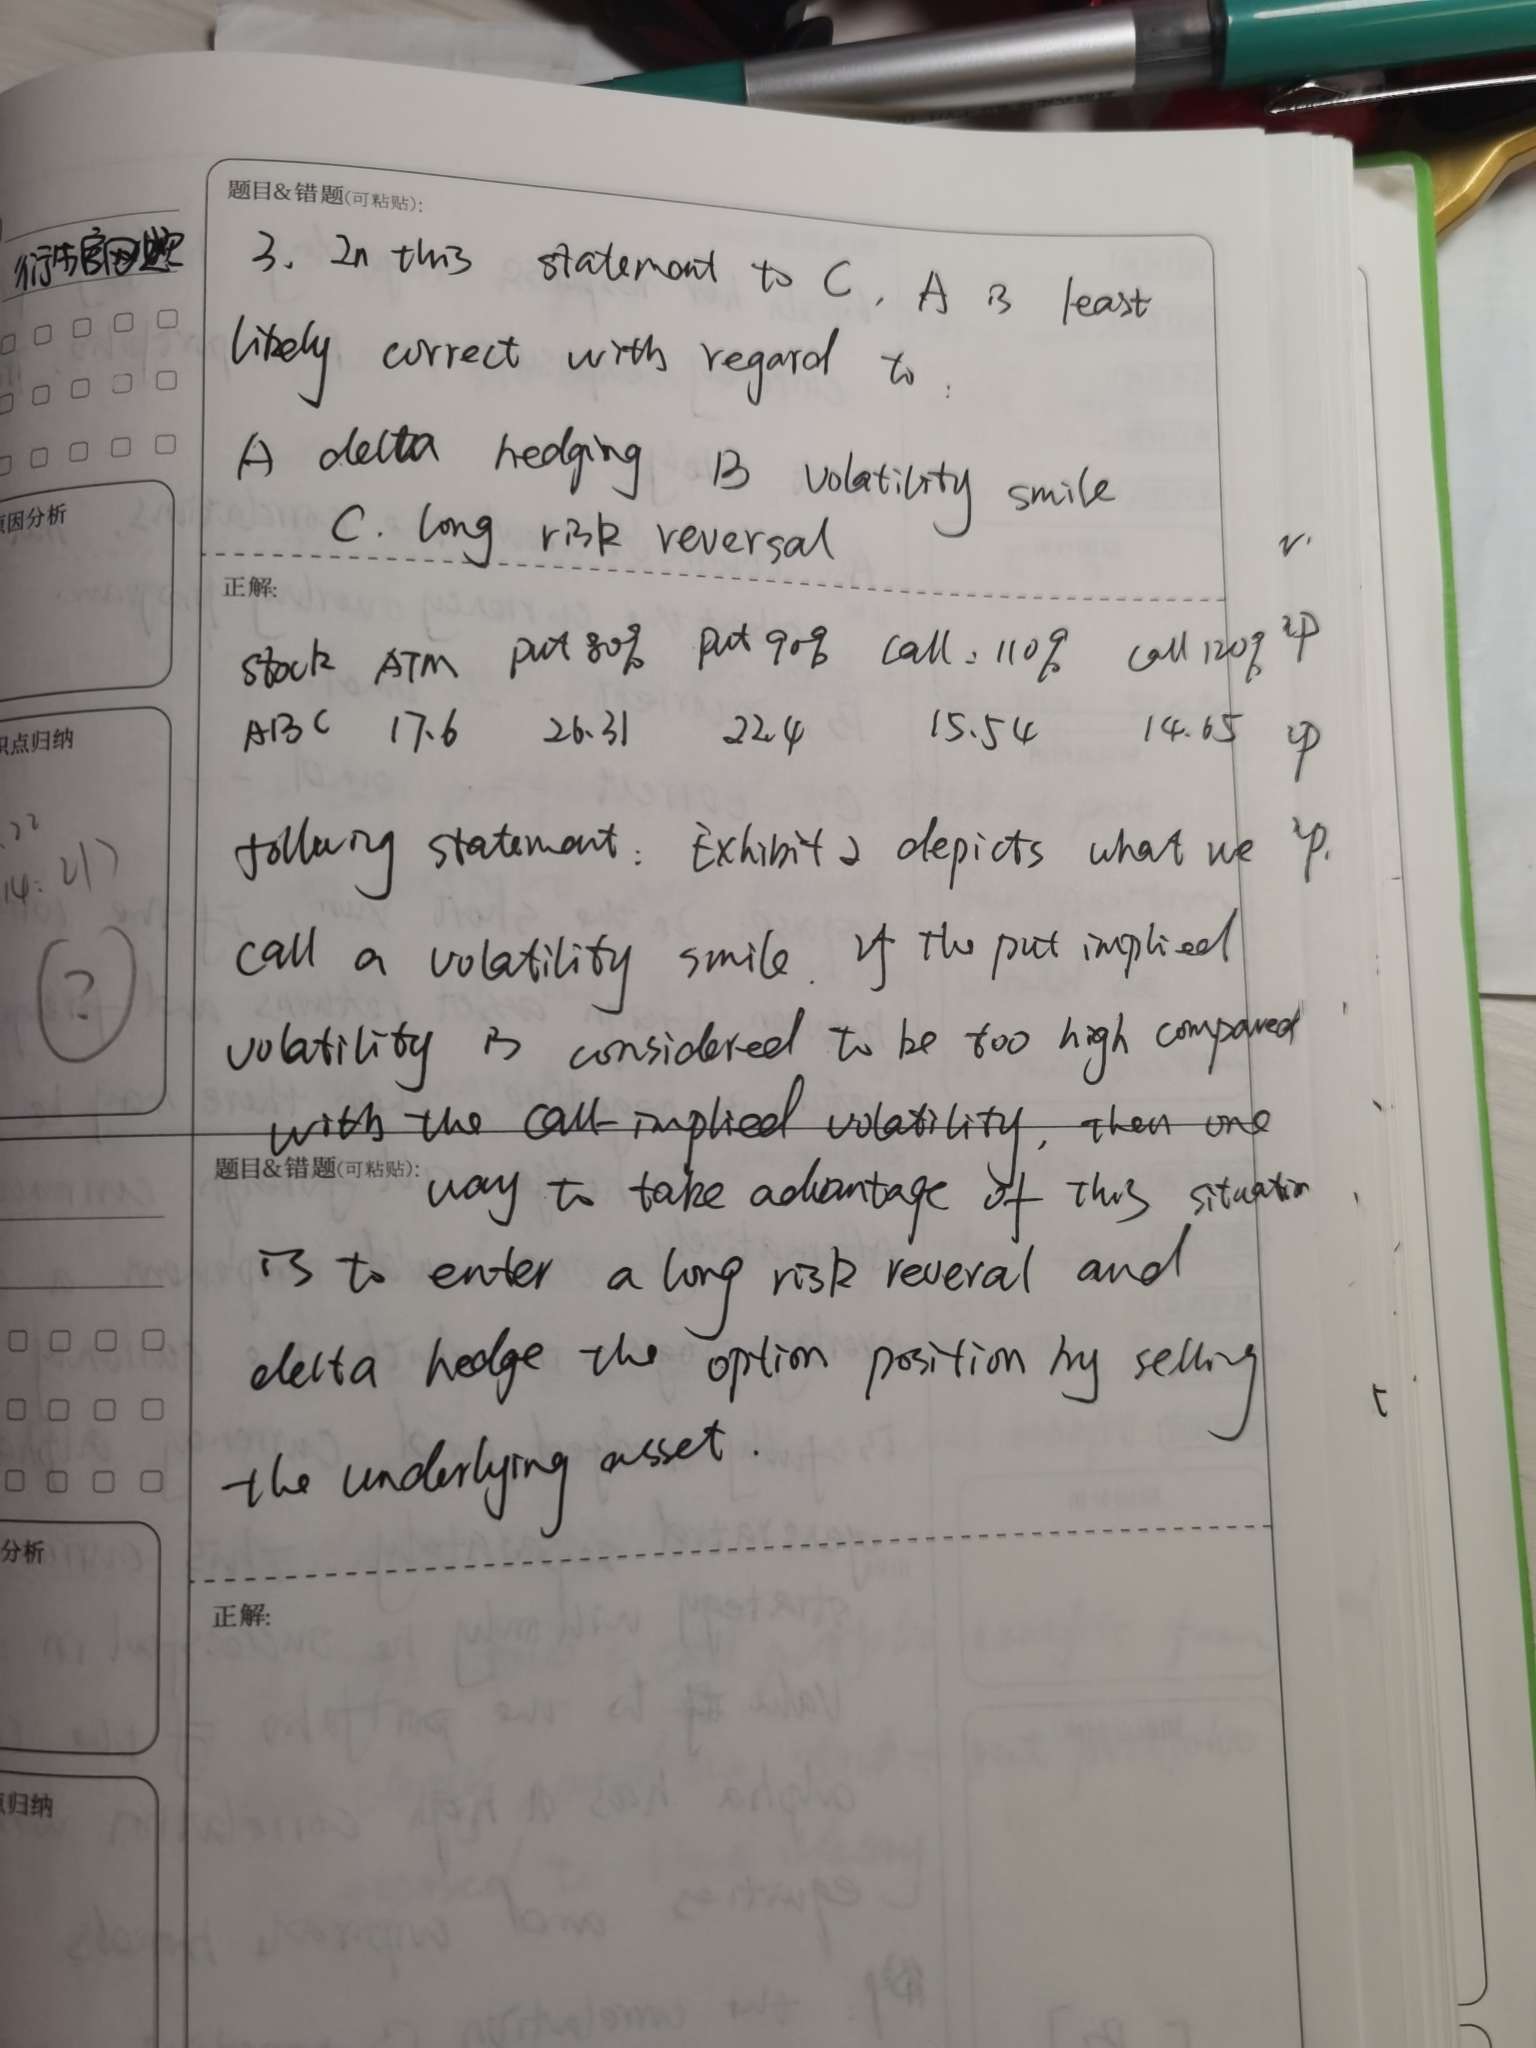 题目&错题(可粘贴):
衍生官网题
3. In this statement to C, A is least
likely correct with regard to:
A delta hedging B volatility smile
C. long risk reversal
原因分析
正解:
stock ATM put 80% put 90% call: 110% call 120%
ABC 17.6 26.31 22.4 15.54 14.65
识点归纳
following statement: Exhibit 2 depicts what we
call a volatility smile. If the put implied
?
volatility is considered to be too high compared
with the call-implied volatility, then one
题目&错题(可粘贴):
way to take advantage of this situation
is to enter a long risk reveral and
delta hedge the option position by selling
the underlying asset.
分析
正解:
点归纳